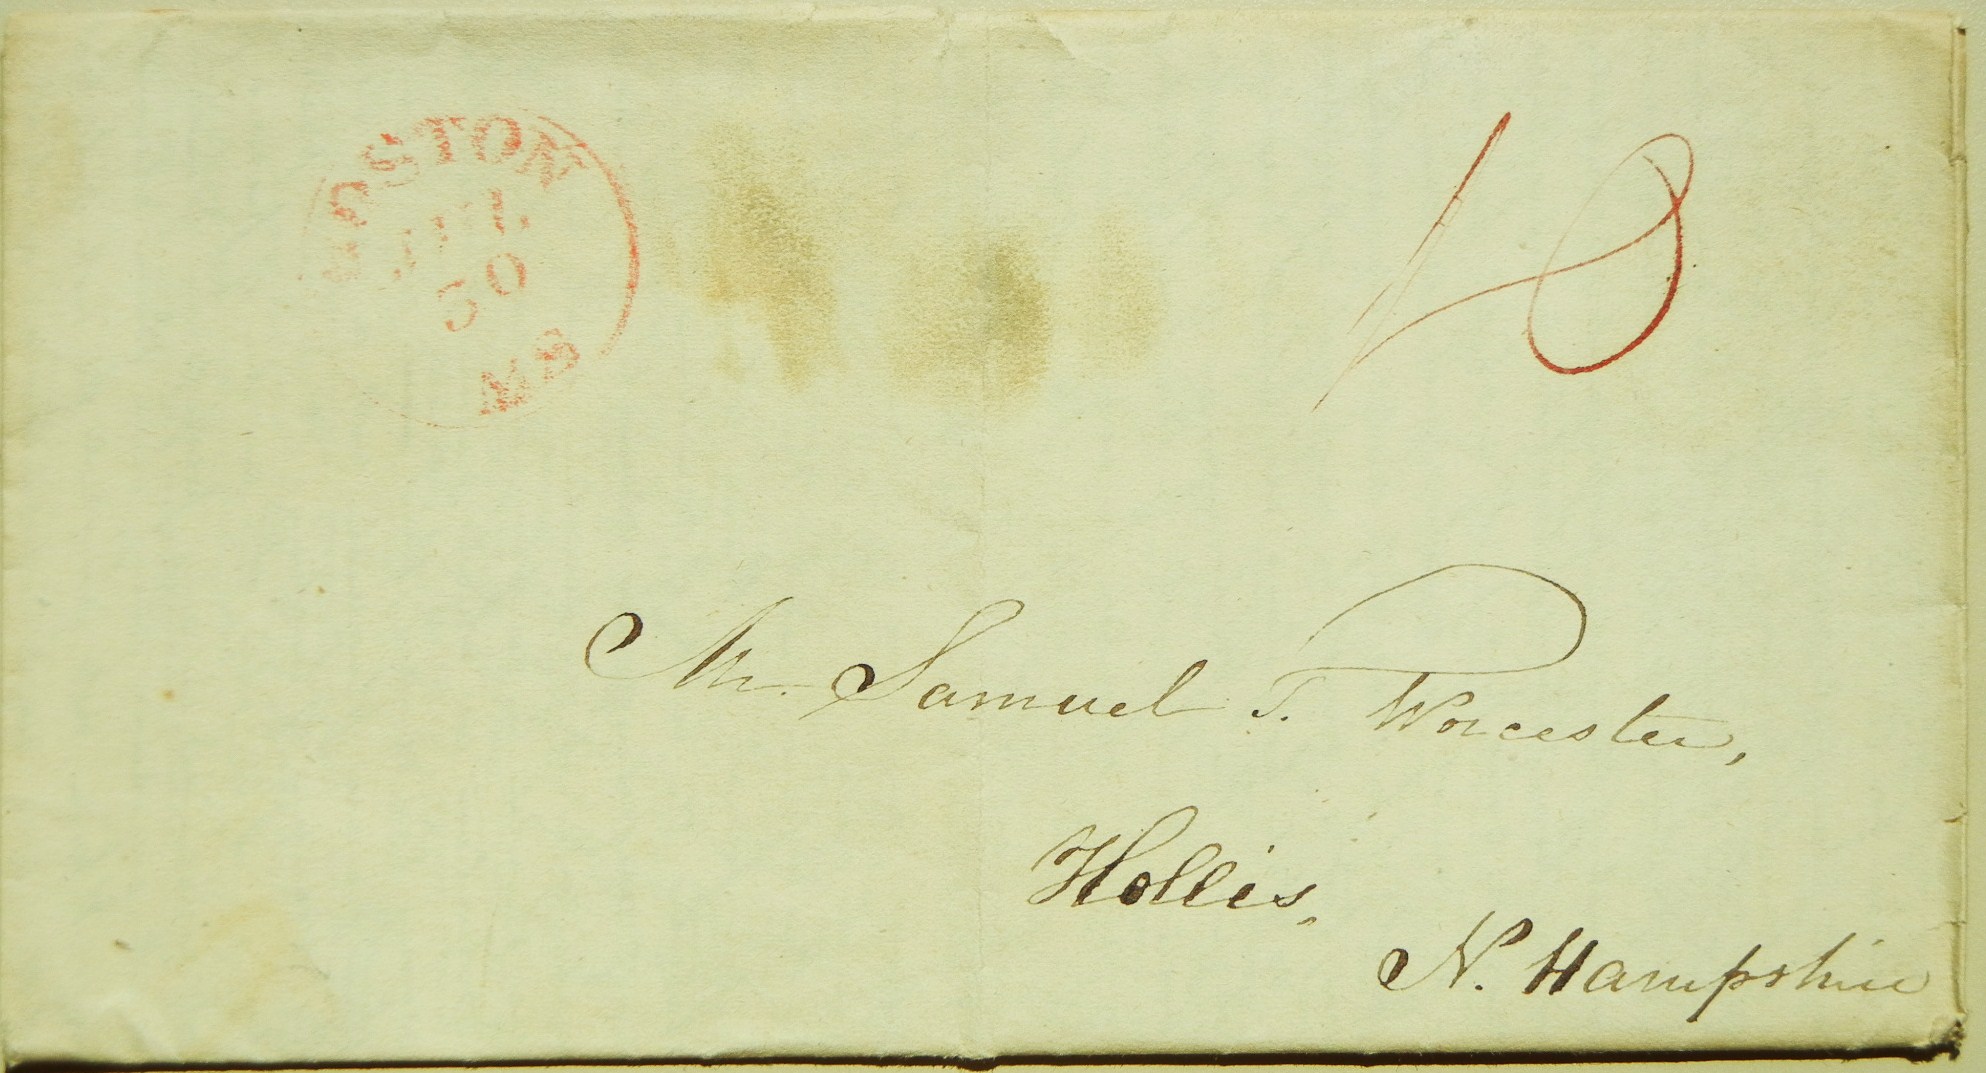 BOSTON
JUL
30
MS
10
Mr. Samuel T. Worcester,
Hollis,
N. Hampshire